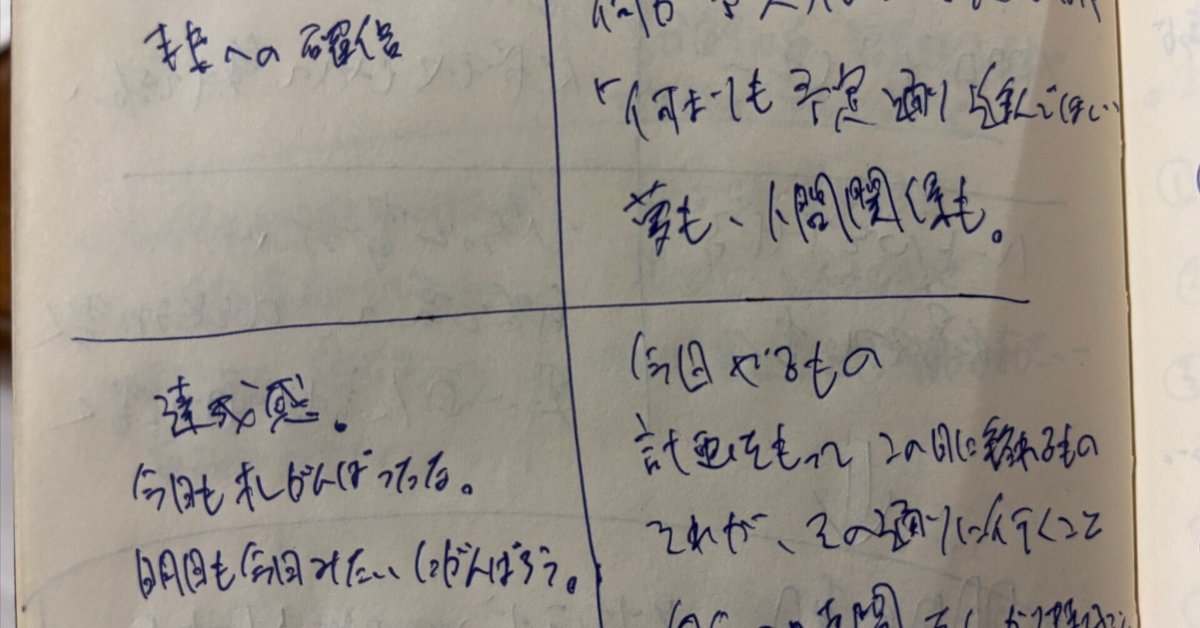 への確信
「何もかも予定通り進んでほしい
夢も、人間関係も。
達成感。
今日も私がんばったな。
明日も今日みたいにがんばろう。
今日やるもの
計画をもって この日に終わるもの
それが、その通りに行くこと